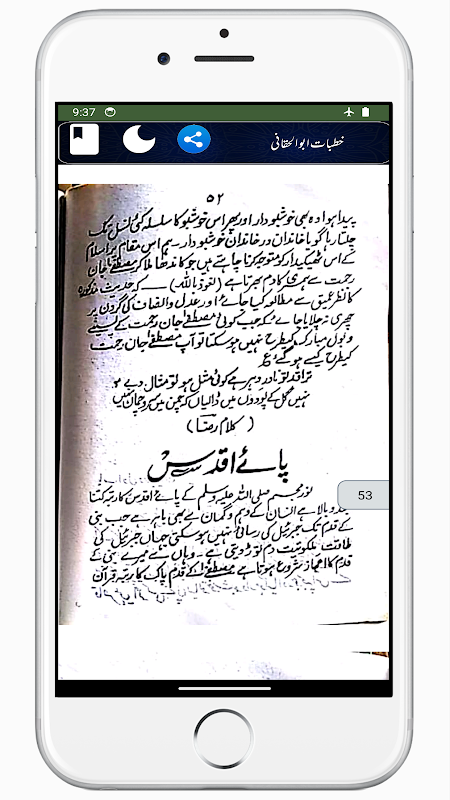 9:37
خطبات ابوالحقانی
۵۲
پیدا ہوا وہ بھی خوشبودار اور پھر اس خوشبو کا سلسلہ کئی نسل تک
چلتا رہا گویا خاندان در خاندان خوشبودار۔ ہم اس مقام پر اسلام
کے اس ٹھیکیدار کو متوجہ کرنا چاہتے ہیں جو کاندھا ملا کر مصطفےٰ جان
رحمت سے ہمسری کا دم بھرتا ہے (نعوذ باللہ) ـــ کہ حدیث مذکورہ
کا نظر عمیق سے مطالعہ کیا جائے اور عدل و انصاف کی گردن پر
چھری نہ چلایا جائے کہ جب کوئی مصطفےٰ جان رحمت کے پسینے
و بول مبارک کیطرح نہیں ہو سکتا تو آپ مصطفےٰ جان رحمت
کیطرح کیسے ہو گئے ؏
ترا قد تو نادر دہر ہے کوئی مثل ہو تو مثال دے
نہیں گل کے پودوں میں ڈالیاں کہ چمن میں سرو چماں نہیں
(کلام رضا)
پائے اقدس
نور مجسم صلی اللہ علیہ وسلم کے پائے اقدس کا رتبہ کتنا
بلند و بالا ہے انسان کے وہم و گمان سے بھی باہر ہے جب نبی
کے قدم تک جبرئیل کی رسائی نہیں ہو سکتی جہاں جبرئیل کی
طاقت ملکوتیت دم توڑ دیتی ہے۔ وہاں سے میرے نبی کے
قدم کا اعجاز شروع ہوتا ہے مصطفےٰ کے قدم پاک کا رتبہ قرآن
53